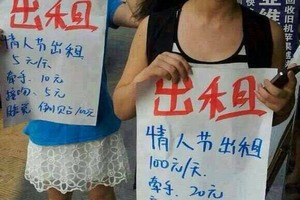 出租
情人节出租
5元/天
牵手: 10元
接吻: 5元
出租
情人节出租
100元/天.
牵手: 20元
回收旧苹果